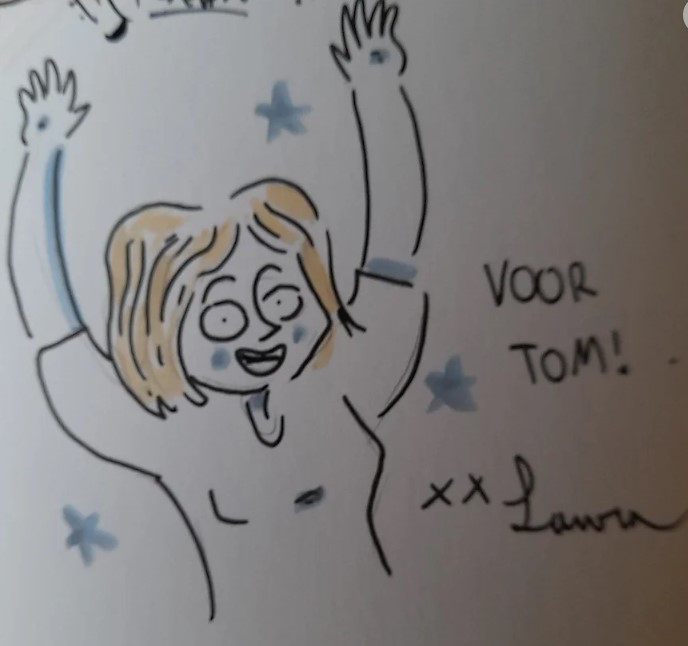 VOOR
TOM!
xx Laura